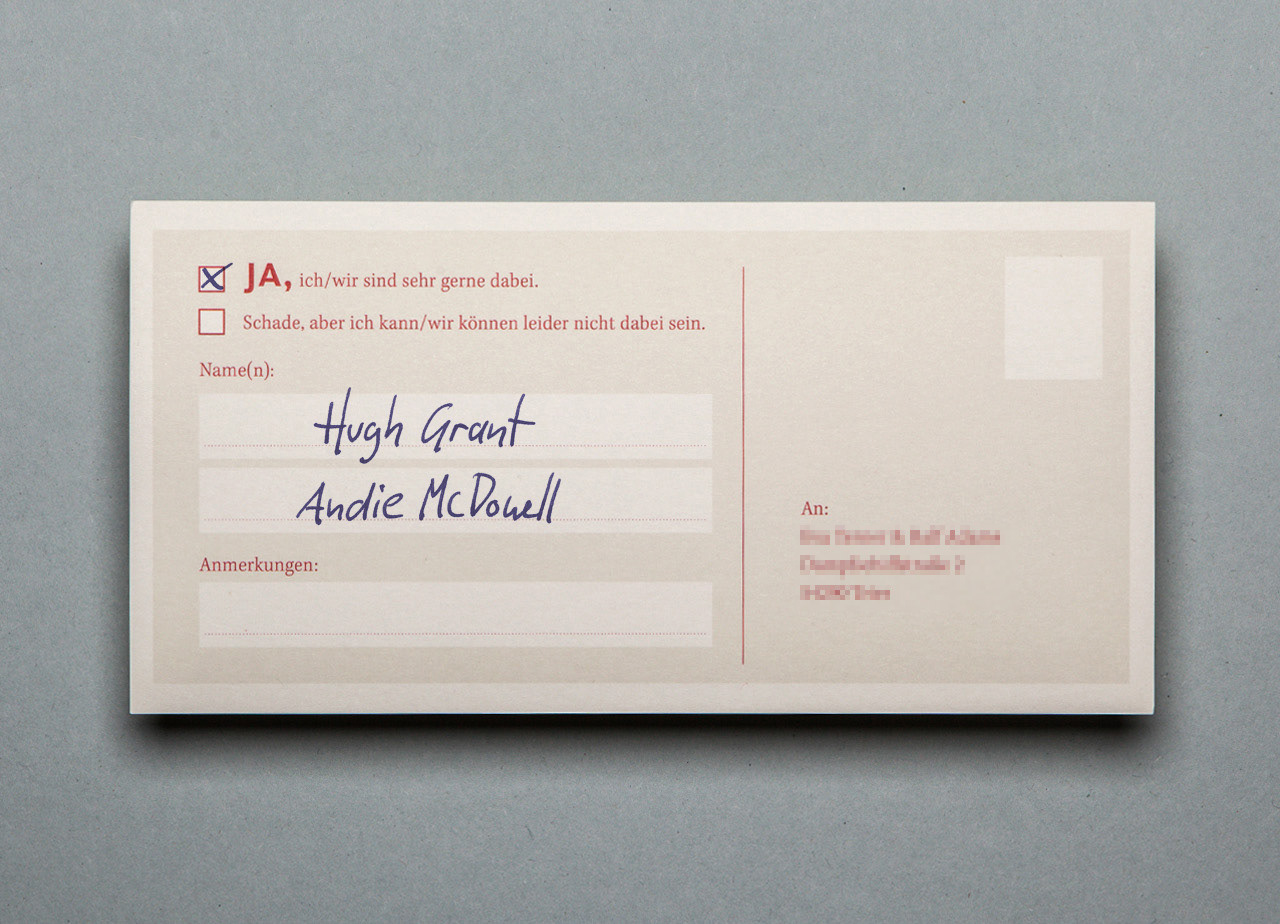 JA, ich/wir sind sehr gerne dabei.
Schade, aber ich kann/wir können leider nicht dabei sein.
Name(n):
Hugh Grant
Andie McDowell
Anmerkungen:
An: